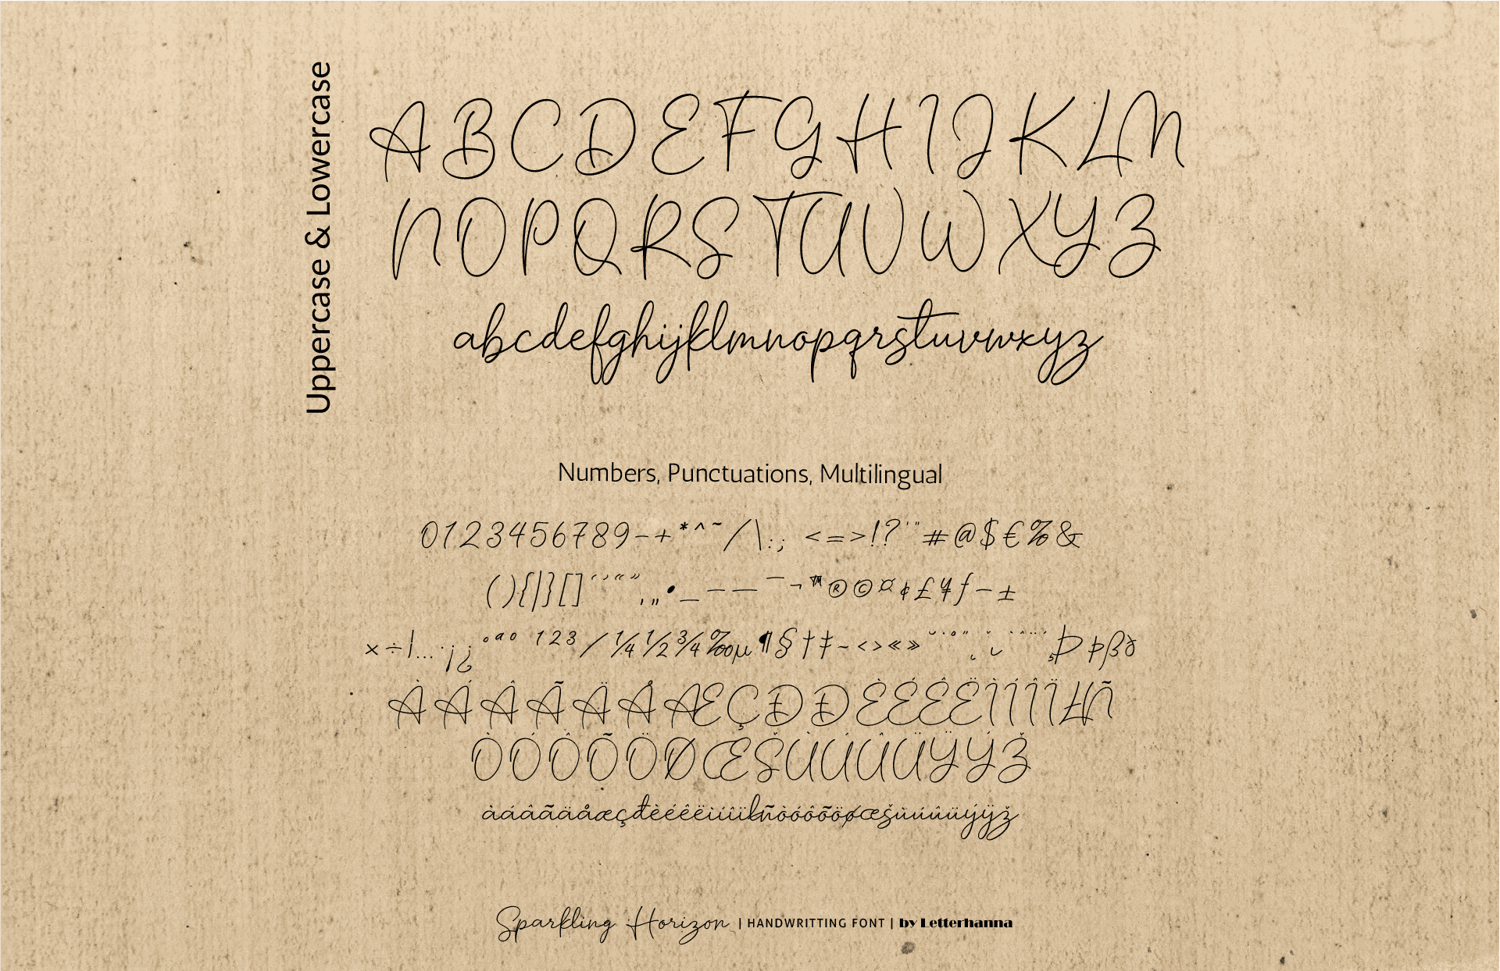 Uppercase & Lowercase
ABCDEFGHIJKLM
NOPQRSTUVWXYZ
abcdefghijklmnopqrstuvwxyz
Numbers, Punctuations, Multilingual
0123456789-+*^~/\:; <=>!?'"#@$€%&
(){|}[]‘’“”‚„•_–—¯¬™®©¤¢£¥ƒ−±
×÷|…·¡¿°ªº ¹²³⁄¼½¾‰µ¶§†‡-‹›«»˘˙˚˝˛ˇ¸Þþßð
ÀÁÂÃÄÅÆÇÐĐÈÉÊËÌÍÎÏŁÑ
ÒÓÔÕÖØŒŠÙÚÛÜÝŸŽ
àáâãäåæçđèéêëìíîïłñòóôõöøœšùúûüýÿž
Sparkling Horizon | HANDWRITTING FONT | by Letterhanna